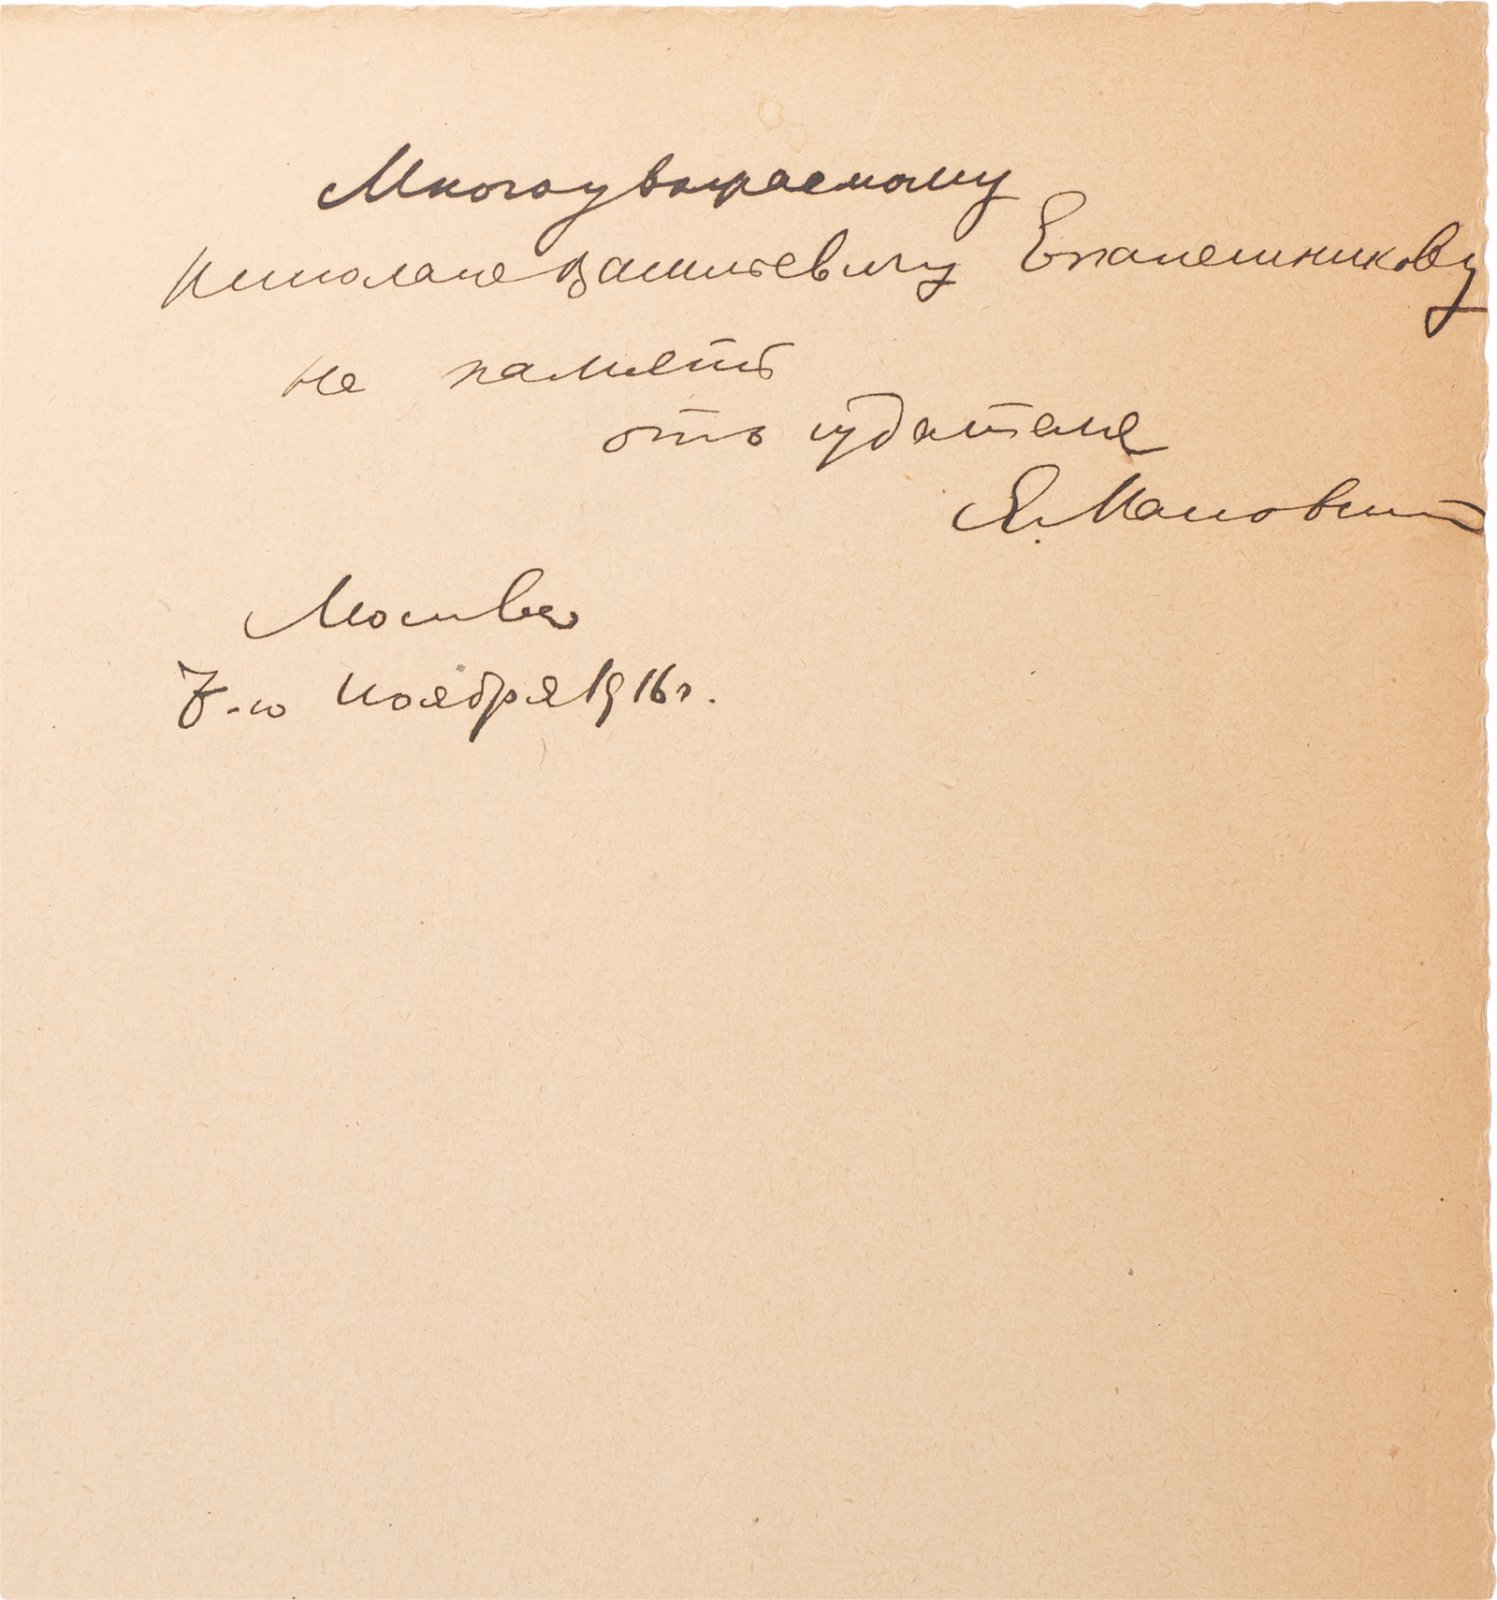 Многоуважаемому
Николаю Васильевичу Епанешникову
на память
отъ издателя
Я. Маковский
Москва
7-го Ноября 1916 г.